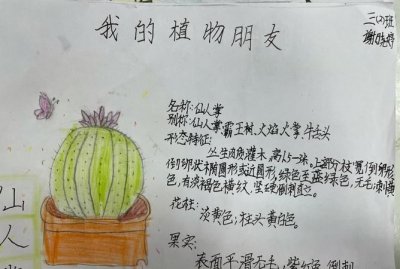 我的植物朋友
三(2)班
谢晓婷
名称:仙人掌
别称:仙人掌,霸王树,火焰,火掌,牛舌头
形态特征:
丛生肉质灌木,高1.5-米。上部分枝宽倒卵形,
倒卵状椭圆形或近圆形,绿色至蓝绿色,无毛;刺黄
色,有淡褐色横纹,坚硬,倒刺直立。
花柱:
淡黄色;柱头黄白色。
果实:
表面平滑无毛,紫红色,倒刺
仙
人
掌